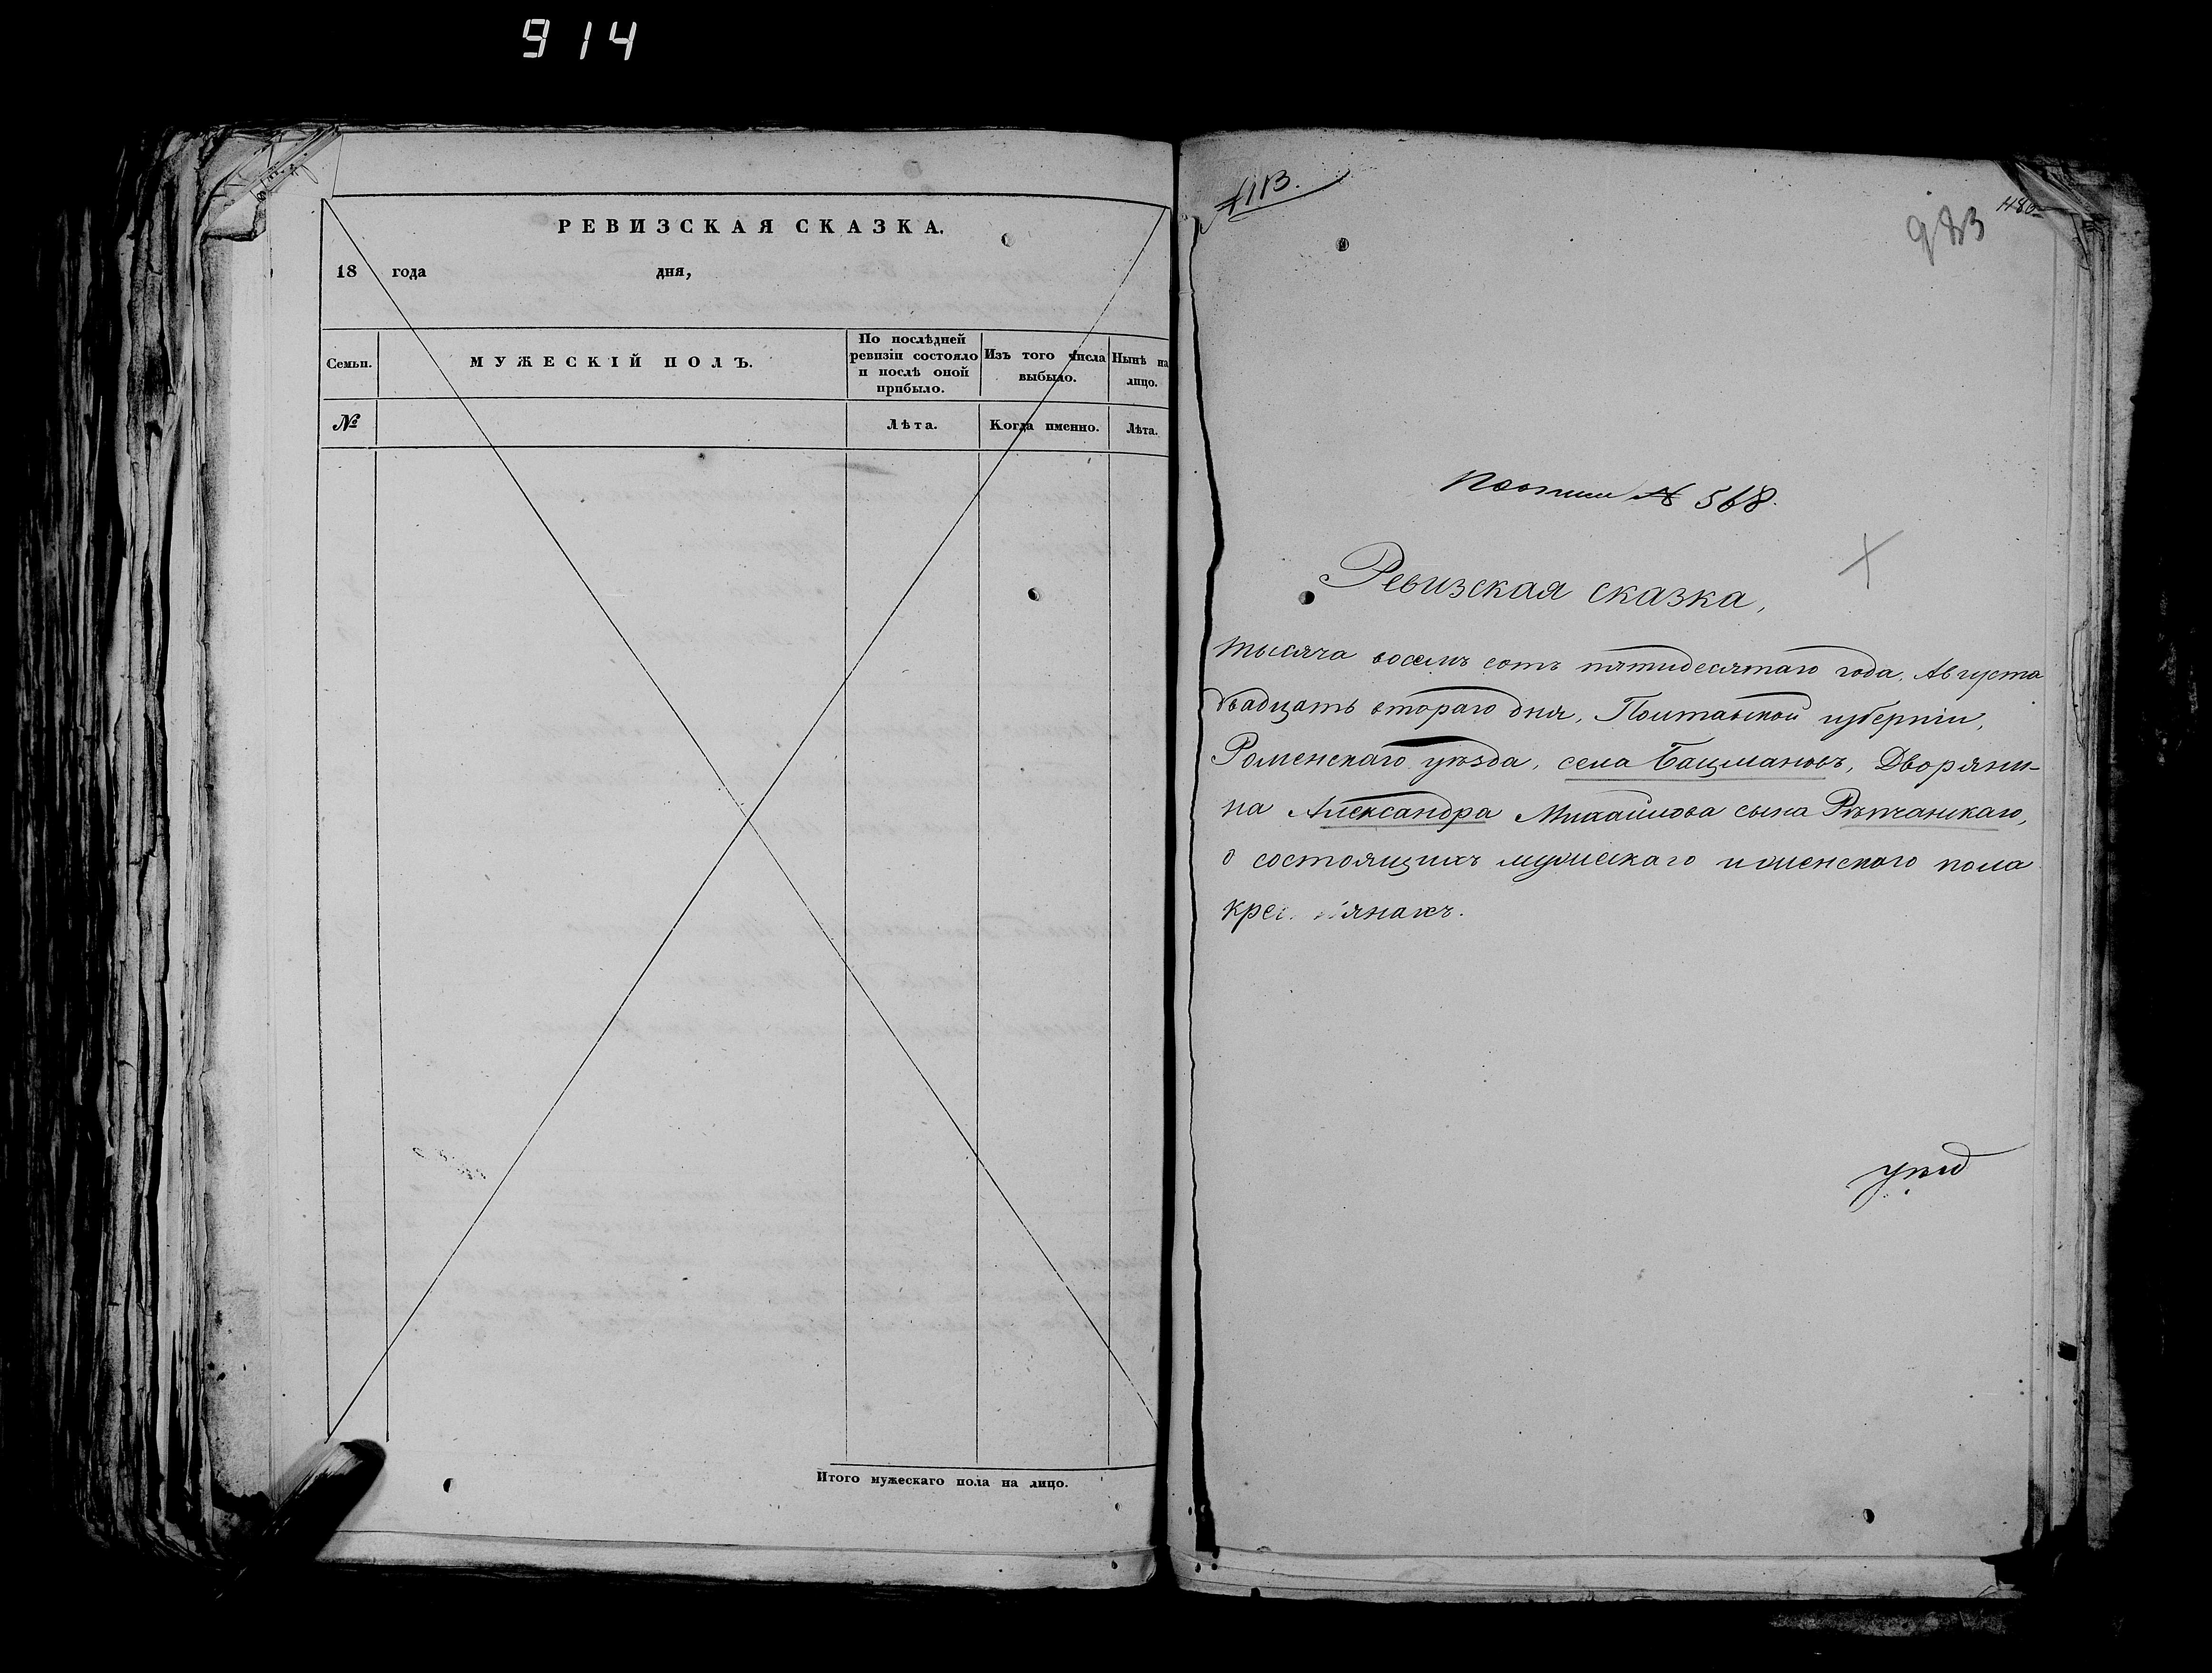 914
РЕВИЗСКАЯ СКАЗКА.
18 года дня,
Семьи.
МУЖЕСКІЙ ПОЛЪ.
По послѣдней ревизіи состояло и послѣ оной прибыло.
Изъ того числа выбыло.
Нынѣ на лицо.
№
Лѣта.
Когда именно.
Лѣта.
Итого мужескаго пола на лицо.
983
№ 568.
Ревизская сказка,
тысяча восемъ сотъ пятидесятаго года, Августа
двадцать втораго дня, Полтавской губерніи,
Роменскаго уѣзда, села Бацмановъ, Дворяни-
на Александра Михайлова сына Рѣпчанскаго,
о состоящихъ мужескаго и женскаго пола